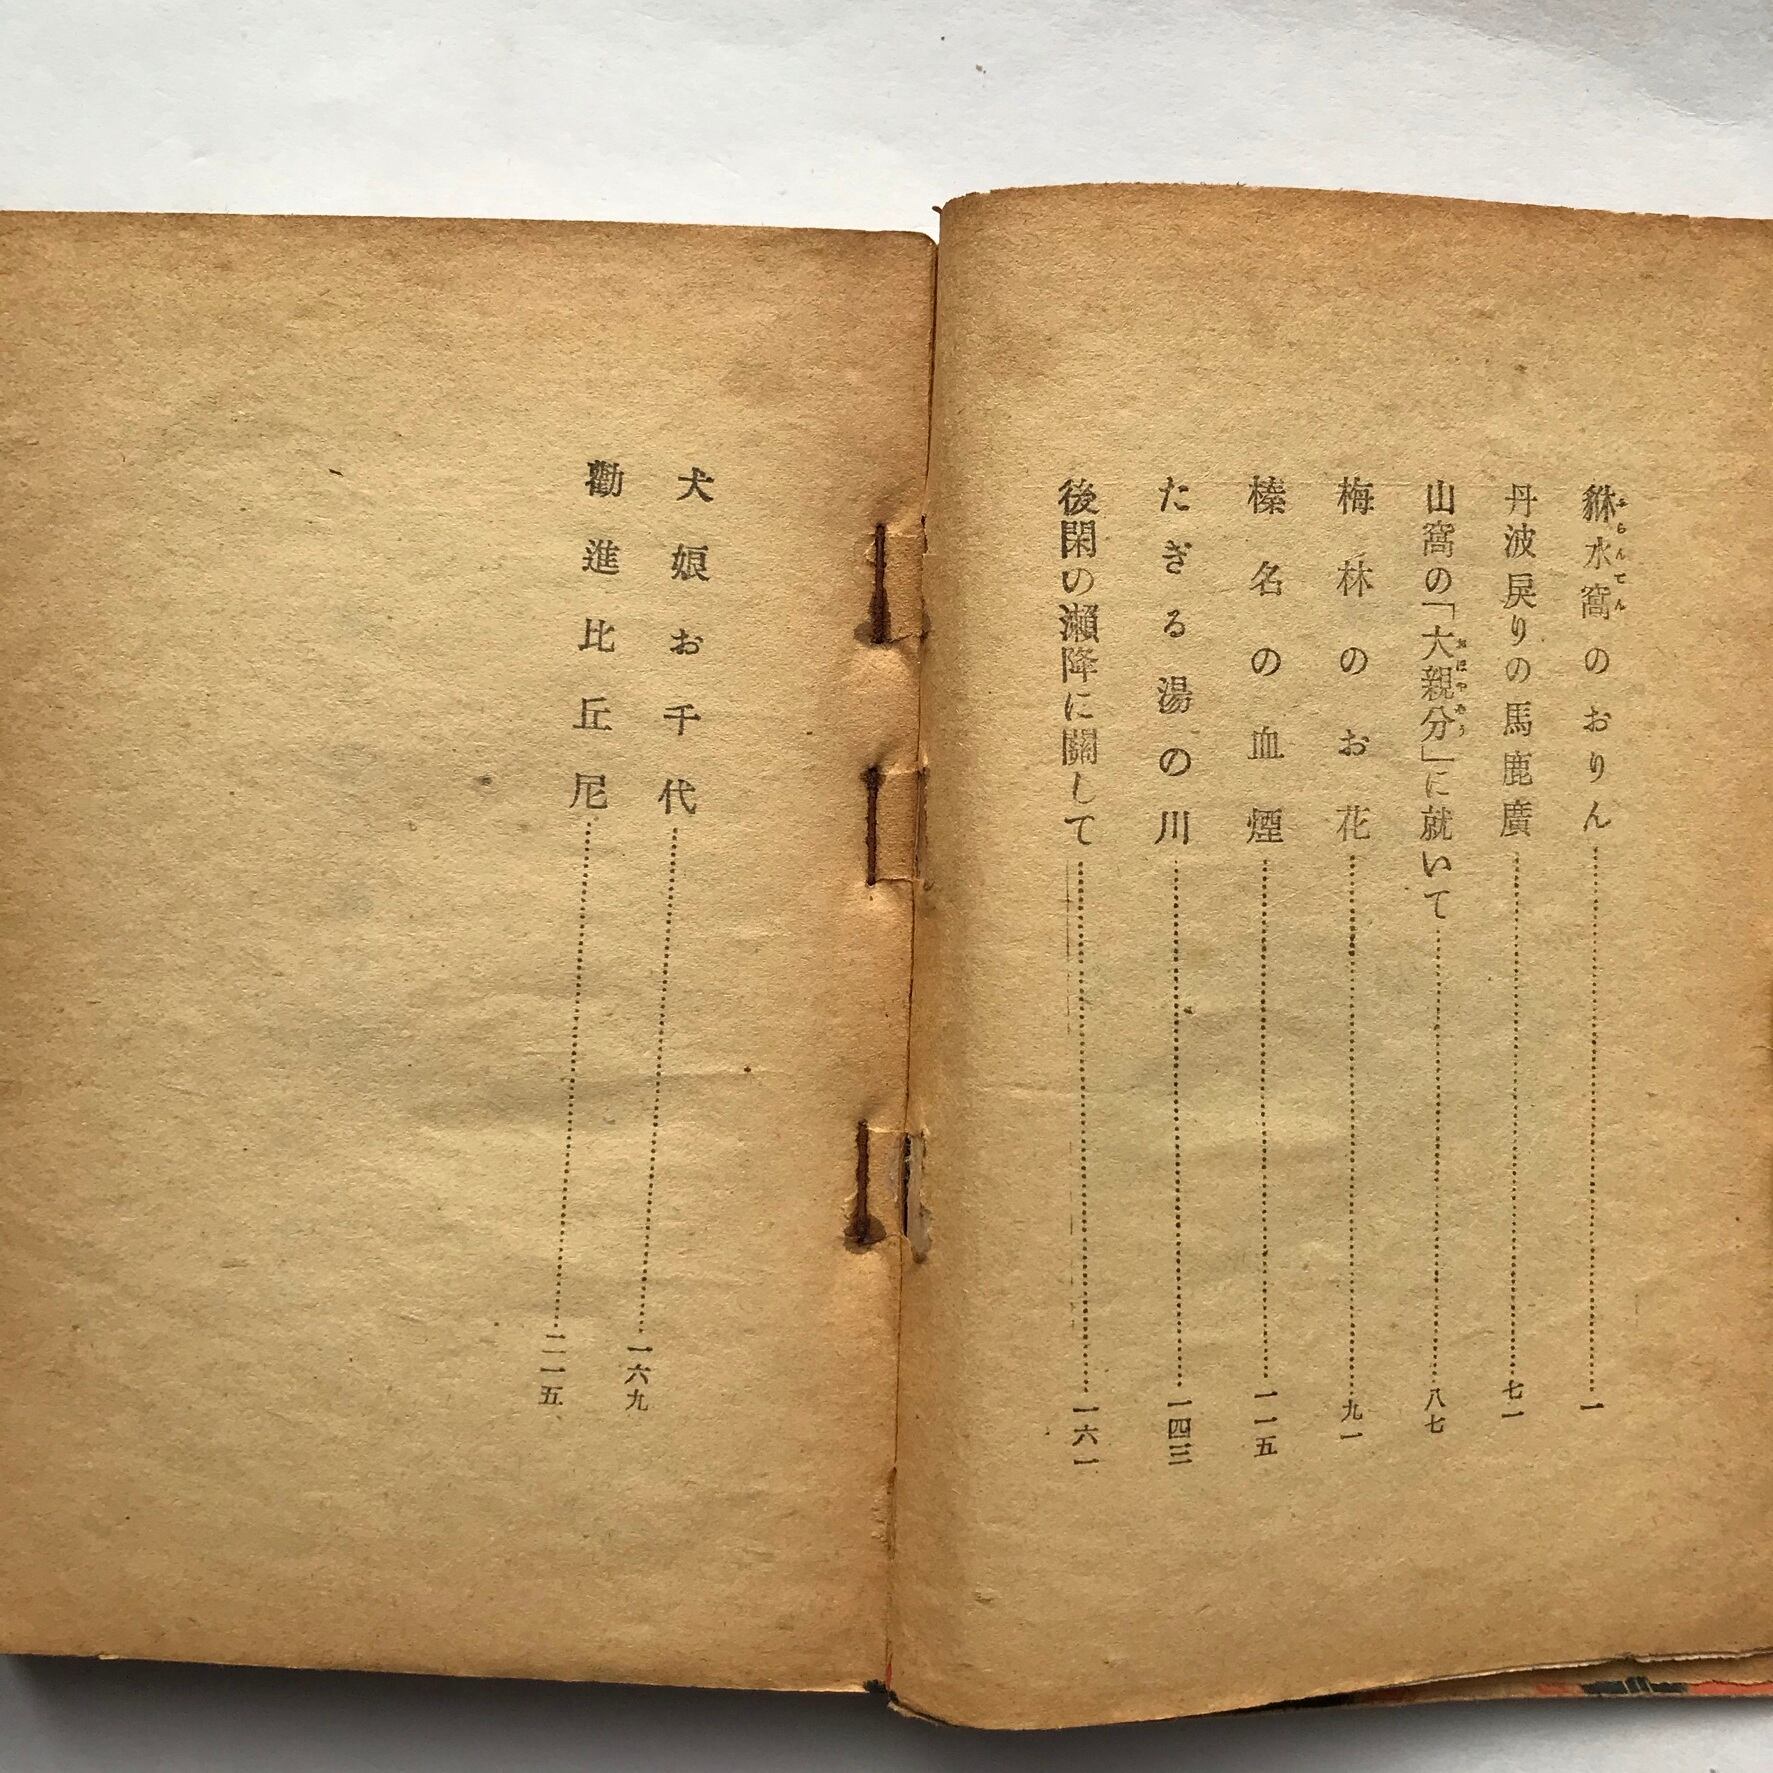 貅水窩のおりん……一
丹波戻りの馬鹿廣……七一
山窩の「大親分」に就いて……八七
梅林のお花……九一
榛名の血煙……一一五
たぎる湯の川……一四三
後閑の瀬降に關して……一六一
犬娘お千代……一六九
勸進比丘尼……二一五